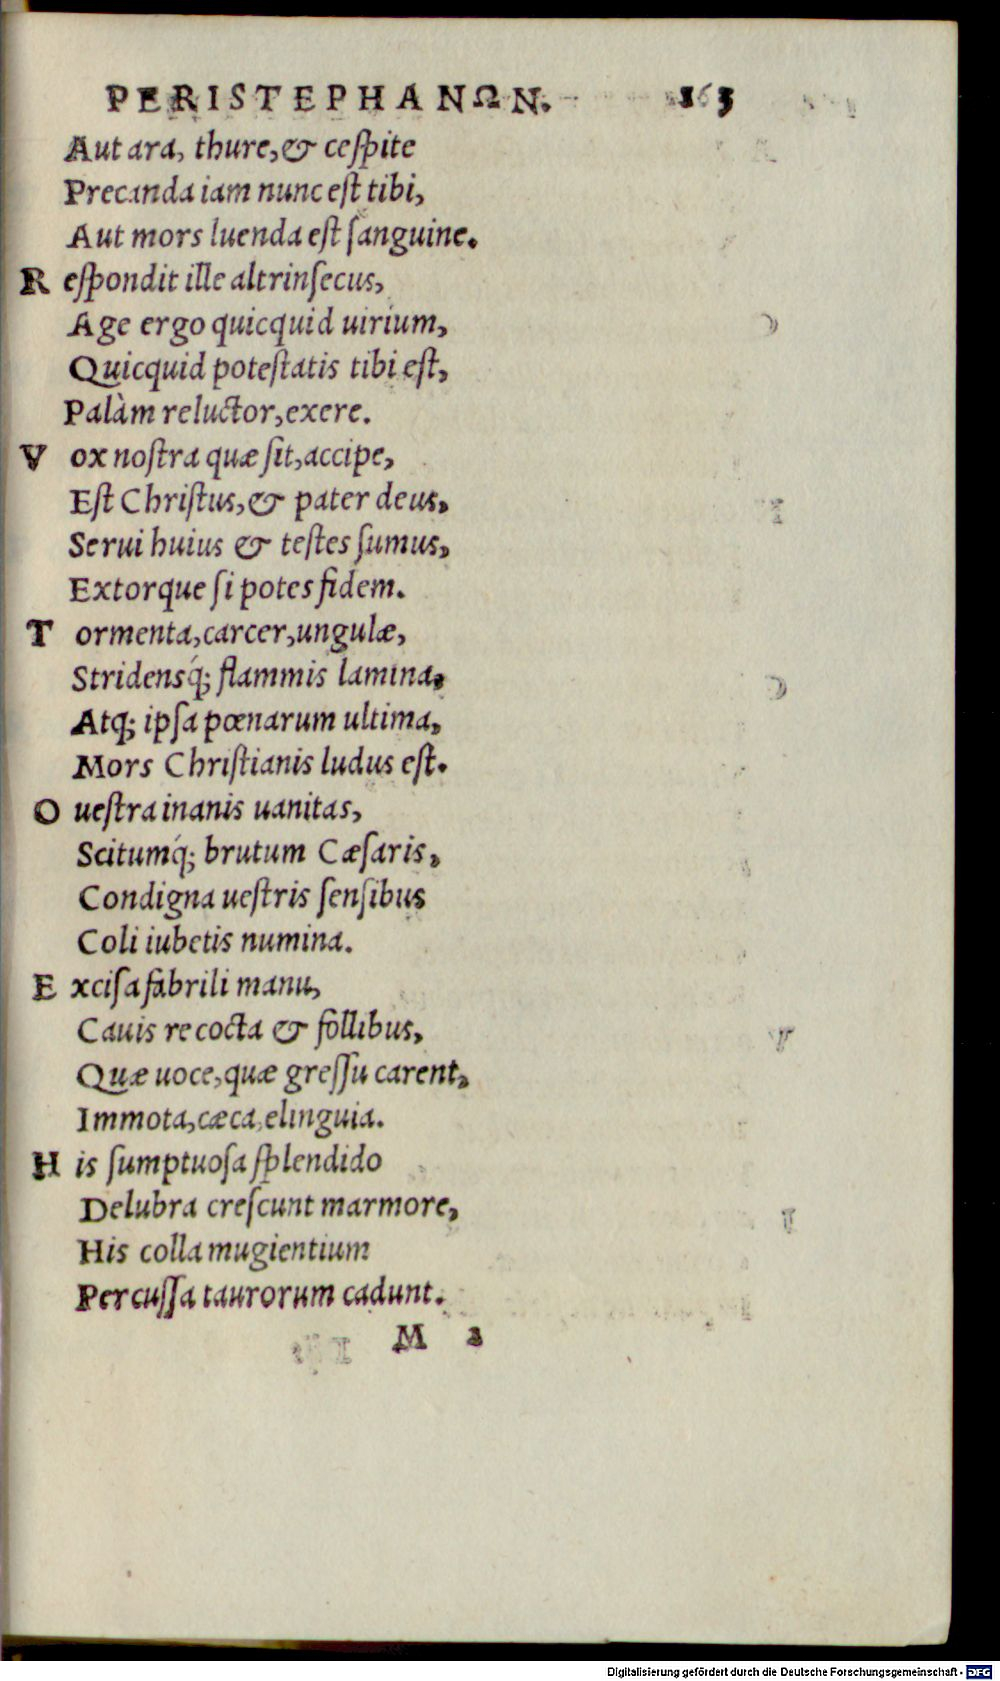 PERISTEPHANΩN. 163
Aut ara, thure, & ceſpite
Precanda iam nunc eſt tibi,
Aut mors luenda eſt ſanguine.
R eſpondit ille altrinſecus,
Age ergo quicquid uirium,
Quicquid poteſtatis tibi eſt,
Palàm reluctor, exere.
V ox noſtra quæ ſit, accipe,
Eſt Chriſtus, & pater deus,
Serui huius & teſtes ſumus,
Extorque ſi potes fidem.
T ormenta, carcer, ungulæ,
Stridensq́; flammis lamina,
Atq; ipſa pœnarum ultima,
Mors Chriſtianis ludus eſt.
O ueſtra inanis uanitas,
Scitumq́; brutum Cæſaris,
Condigna ueſtris ſenſibus
Coli iubetis numina.
E xciſa fabrili manu,
Cauis recocta & follibus,
Quæ uoce, quæ greſſu carent,
Immota, cæca, elinguia.
H is ſumptuoſa ſplendido
Delubra creſcunt marmore,
His colla mugientium
Percuſſa taurorum cadunt.
M 2
Digitalisierung gefördert durch die Deutsche Forschungsgemeinschaft - DFG